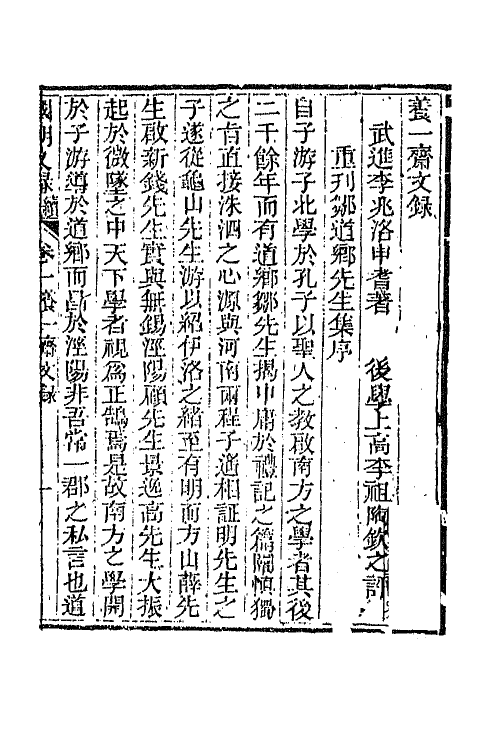 養一齋文錄
武進李兆洛申耆著　後學上高李祖陶欽之評
重刊鄒道鄉先生集序
自子游子北學於孔子以聖人之教啟南方之學者其後
二千餘年而有道鄉鄒先生揭中庸於禮記之篇闡慎獨
之旨直接洙泗之心源與河南兩程子遙相証明先生之
子遂從龜山先生游以紹伊洛之緒至有明而方山薛先
生啟新錢先生實與無錫涇陽顧先生景逸高先生大振
起於微墜之中天下學者視爲正鵠焉是故南方之學開
於子游導於道鄉而昌於涇陽非吾常一郡之私言也道
國朝文錄續　卷一養一齋文錄　一